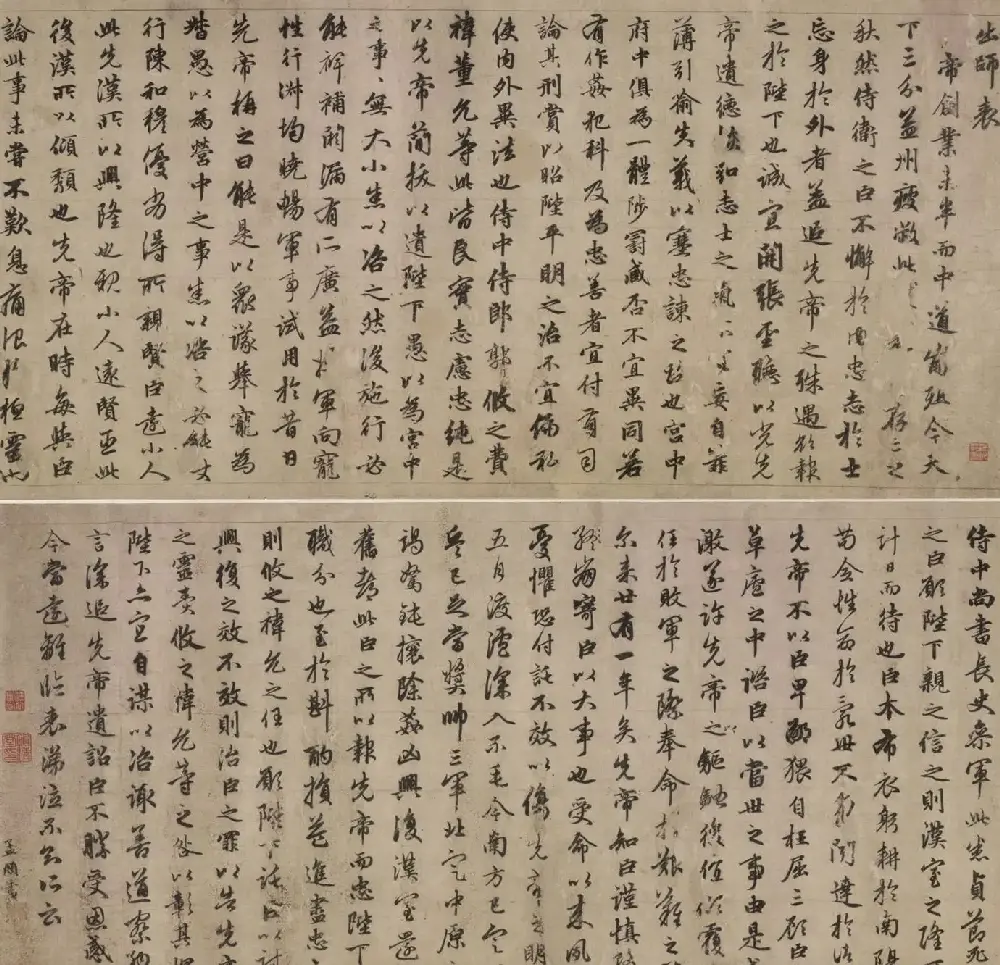 出師表
帝創業未半而中道崩殂今天
下三分益州疲敝此
秋然侍衛之臣不懈於內忠志於士
忘身於外者蓋追先帝之殊遇欲報
之於陛下也誠宜開張聖聽以光先
帝遺德恢弘志士之氣不宜妄自菲
薄引喻失義以塞忠諫之路也宮中
府中俱為一體陟罰臧否不宜異同若
有作姦犯科及為忠善者宜付有司
論其刑賞以昭陛平明之治不宜偏私
使內外異法也侍中侍郎郭攸之費
禕董允等此皆良實志慮忠純是
以先帝簡拔以遺陛下愚以為宮中
之事事無大小悉以咨之然後施行必
能裨補闕漏有所廣益將軍向寵
性行淑均曉暢軍事試用於昔日
先帝稱之曰能是以眾議舉寵為
督愚以為營中之事悉以咨之必能
行陳和穆優劣得所親賢臣遠小人
此先漢所以興隆也親小人遠賢臣此
後漢所以傾頹也先帝在時每與臣
論此事未嘗不歎息痛恨於桓靈也
侍中尚書長史參軍此悉貞節死
之臣願陛下親之信之則漢室之隆
計日而待也臣本布衣躬耕於南陽
苟全性命於亂世不求聞達於諸
先帝不以臣卑鄙猥自枉屈三顧臣
草廬之中諮臣以當世之事由是
激遂許先帝之驅馳後值傾覆
任於敗軍之際奉命於艱難之
尔来廿有一年矣先帝知臣謹慎
臨崩寄臣以大事也受命以来夙
憂懼恐付託不效以傷先帝之明
五月渡瀘深入不毛今南方已定
兵已足當獎帥三軍北定中原
竭駑鈍攘除姦凶興復漢室還
舊都此臣之所以報先帝而忠陛下
職分也至於斟酌損益進盡忠
則攸之禕允之任也願陛下託臣以討
興復之效不效則治臣之罪以告先
之靈責攸之禕允等之咎以彰其
陛下亦宜自謀以咨諏善道察納
言深追先帝遺詔臣不勝受恩感
今當遠離臨表涕泣不知所云
孟頫書